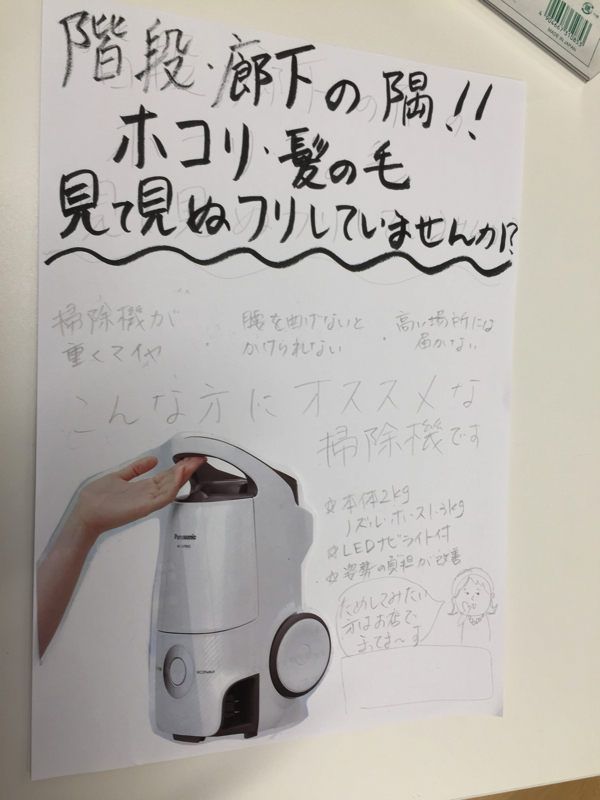 階段・廊下の隅!!
ホコリ・髪の毛
見て見ぬフリしていませんか!?
掃除機が
重くてイヤ
・
腰を曲げないと
かけられない
・
高い場所には
届かない
こんな方にオススメな
掃除機です
Panasonic
☆本体2kg
ノズル・ホース1.3kg
☆LEDナビライト付
☆姿勢の負担が改善
ためしてみたい
方はお店で
まってま〜す
MADE IN JAPAN